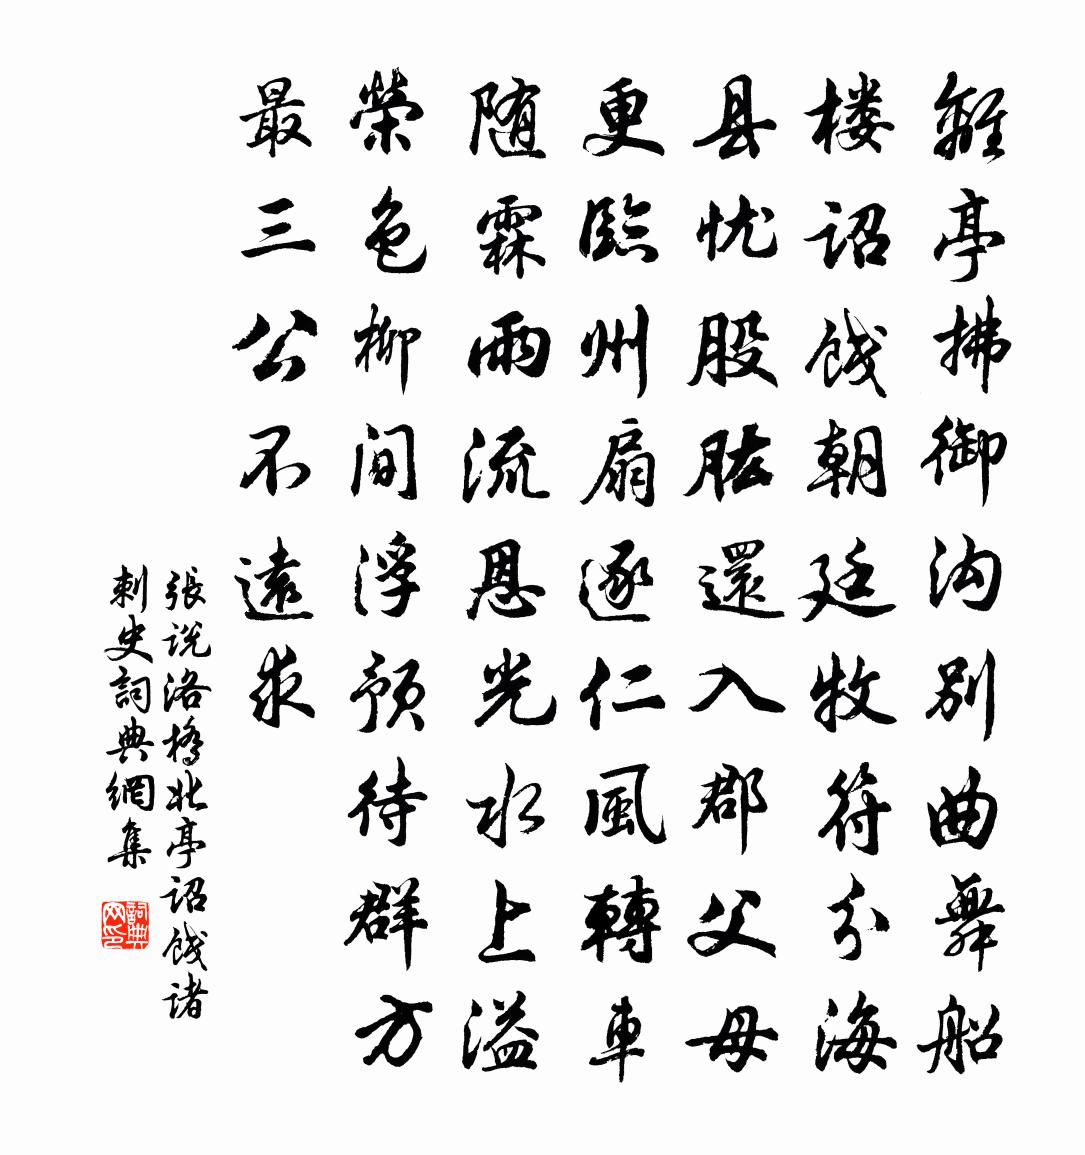 離亭拂御沟别曲舞船
楼詔餞朝廷牧符分海
县忧股肱還入郡父母
更臨州扇逐仁風轉車
随霖雨流恩光水上溢
榮色柳间浮預待群方
最三公不遠求
張说洛橋北亭詔餞诸
刺史詞典網集
詞典网印